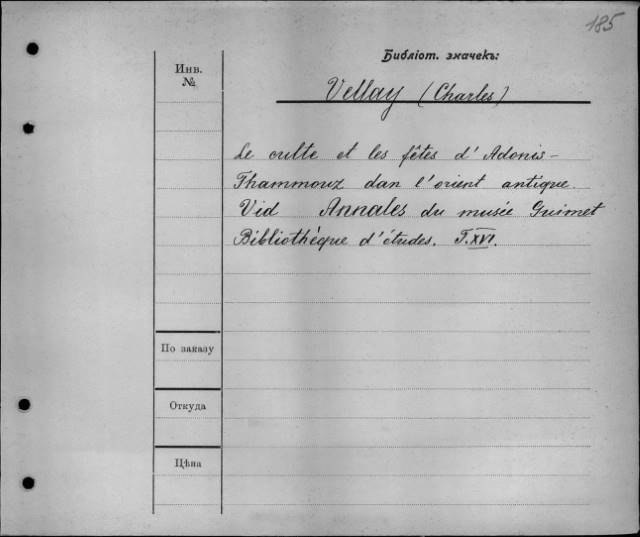 185
Библіот. значекъ:
Инв. №
Vellay (Charles)
Le culte et les fêtes d'Adonis-
Thammouz dan l'orient antique.
Vid Annales du musée Guimet
Bibliothéque d'études. T. XVI.
По заказу
Откуда
Цѣна